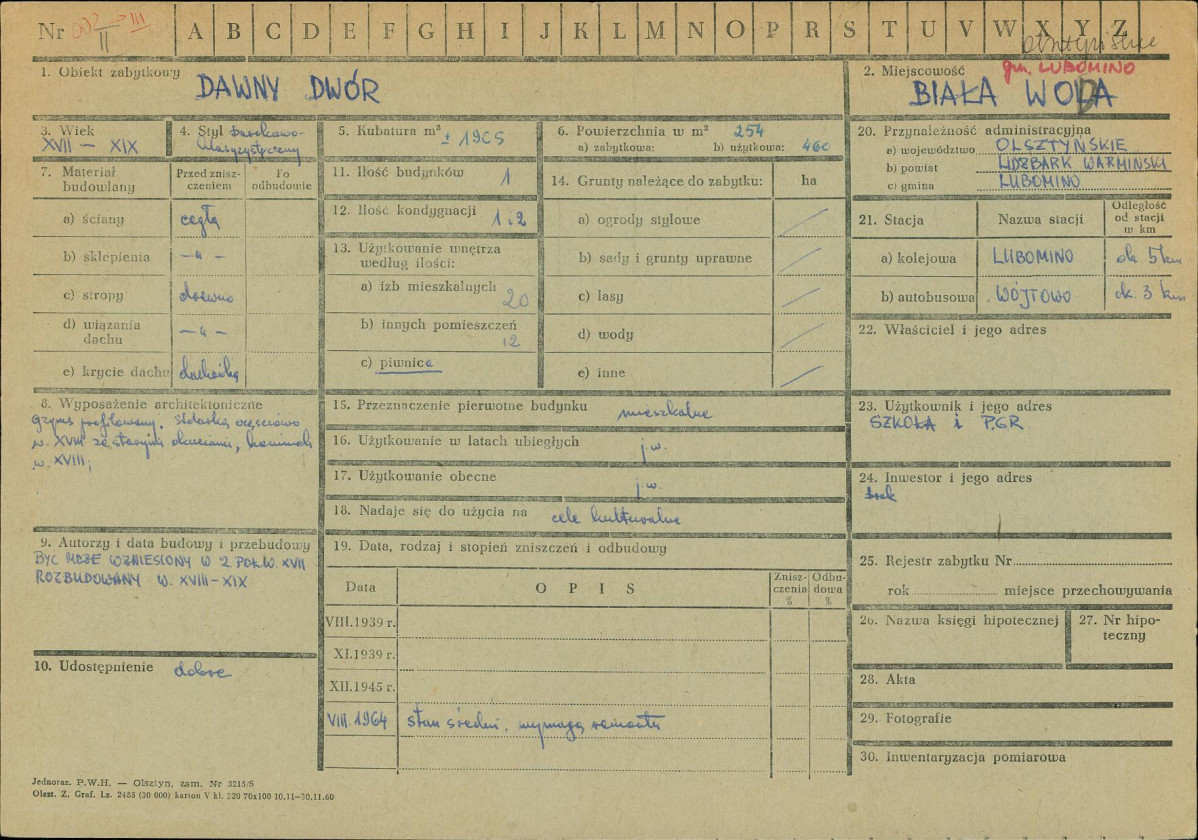 Nr 002 III
II
A B C D E F G H I J K L M N O P R S T U V W X Y Z
1. Obiekt zabytkowy
DAWNY DWÓR
2. Miejscowość gm. LUBOMINO
BIAŁA WOLA
3. Wiek
XVII — XIX
4. Styl barokowo-
klasycystyczny
5. Kubatura m³ ± 1905
6. Powierzchnia w m² 254
a) zabytkowa: b) użytkowa: 460
20. Przynależność administracyjna
a) województwo OLSZTYŃSKIE
b) powiat LIDZBARK WARMIŃSKI
c) gmina LUBOMINO
7. Materiał
budowlany
Przed znisz-
czeniem
Po
odbudowie
a) ściany cegła
b) sklepienia —„—
c) stropy drewno
d) wiązania
dachu —„—
e) krycie dachu dachówka
11. Ilość budynków 1
12. Ilość kondygnacji 1 i 2
13. Użytkowanie wnętrza
według ilości:
a) izb mieszkalnych
20
b) innych pomieszczeń
12
c) piwnice
14. Grunty należące do zabytku: ha
a) ogrody stylowe
b) sady i grunty uprawne
c) lasy
d) wody
e) inne
21. Stacja Nazwa stacji Odległość
od stacji
w km
a) kolejowa LUBOMINO ok. 5 km
b) autobusowa WÓJTOWO ok. 3 km
22. Właściciel i jego adres
8. Wyposażenie architektoniczne
gzyms profilowany. Stolarka częściowo
w. XVIII ze starymi okuciami, kominek
w. XVIII;
15. Przeznaczenie pierwotne budynku mieszkalne
16. Użytkowanie w latach ubiegłych j.w.
17. Użytkowanie obecne j.w.
18. Nadaje się do użycia na cele kulturalne
23. Użytkownik i jego adres
SZKOŁA i PGR
24. Inwestor i jego adres
brak
9. Autorzy i data budowy i przebudowy
BYĆ MOŻE WZNIESIONY W 2 POŁ. W. XVII
ROZBUDOWANY W. XVIII-XIX
10. Udostępnienie dobre
19. Data, rodzaj i stopień zniszczeń i odbudowy
Data O P I S Znisz-
czenia
% Odbu-
dowa
%
VIII.1939 r.
XI.1939 r.
XII.1945 r.
VIII.1964 stan średni, wymaga remontu
25. Rejestr zabytku Nr
rok miejsce przechowywania
26. Nazwa księgi hipotecznej
27. Nr hipo-
teczny
28. Akta
29. Fotografie
30. Inwentaryzacja pomiarowa
Jednoraz. P.W.H. — Olsztyn, zam. Nr 3215/S
Olszt. Z. Graf. Lz. 2485 (30 000) karton V kl. 220 70x100 10.11—30.11.60